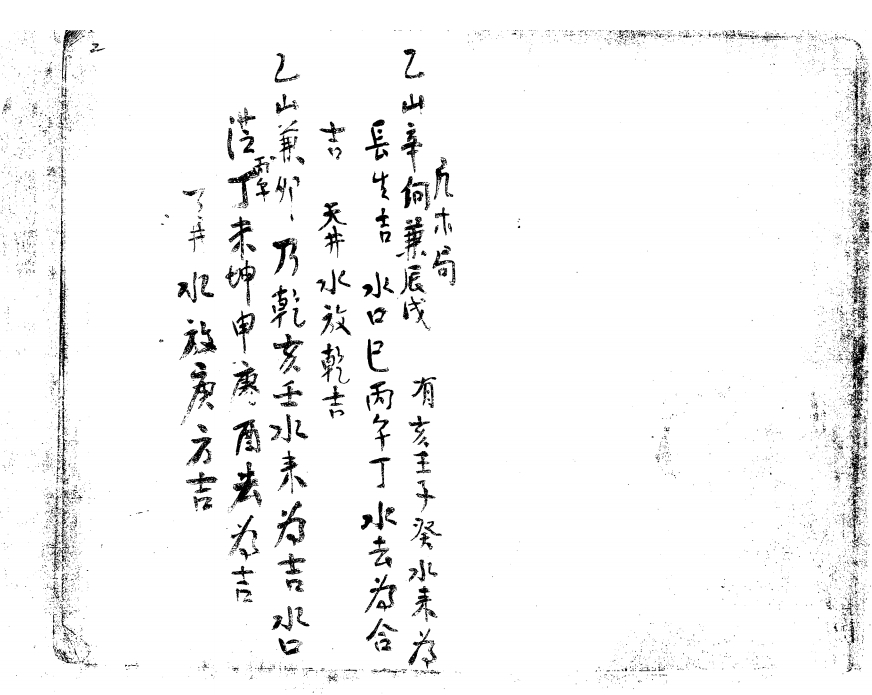 2
木局
乙山辛向兼辰戌 有亥壬子癸水来为
長生吉 水口巳丙午丁水去为合
吉 天井水放乾吉
乙山兼卯、乃乾亥壬水来为吉水口
丙午
丁未坤申庚、酉去为吉
井水放庚方吉